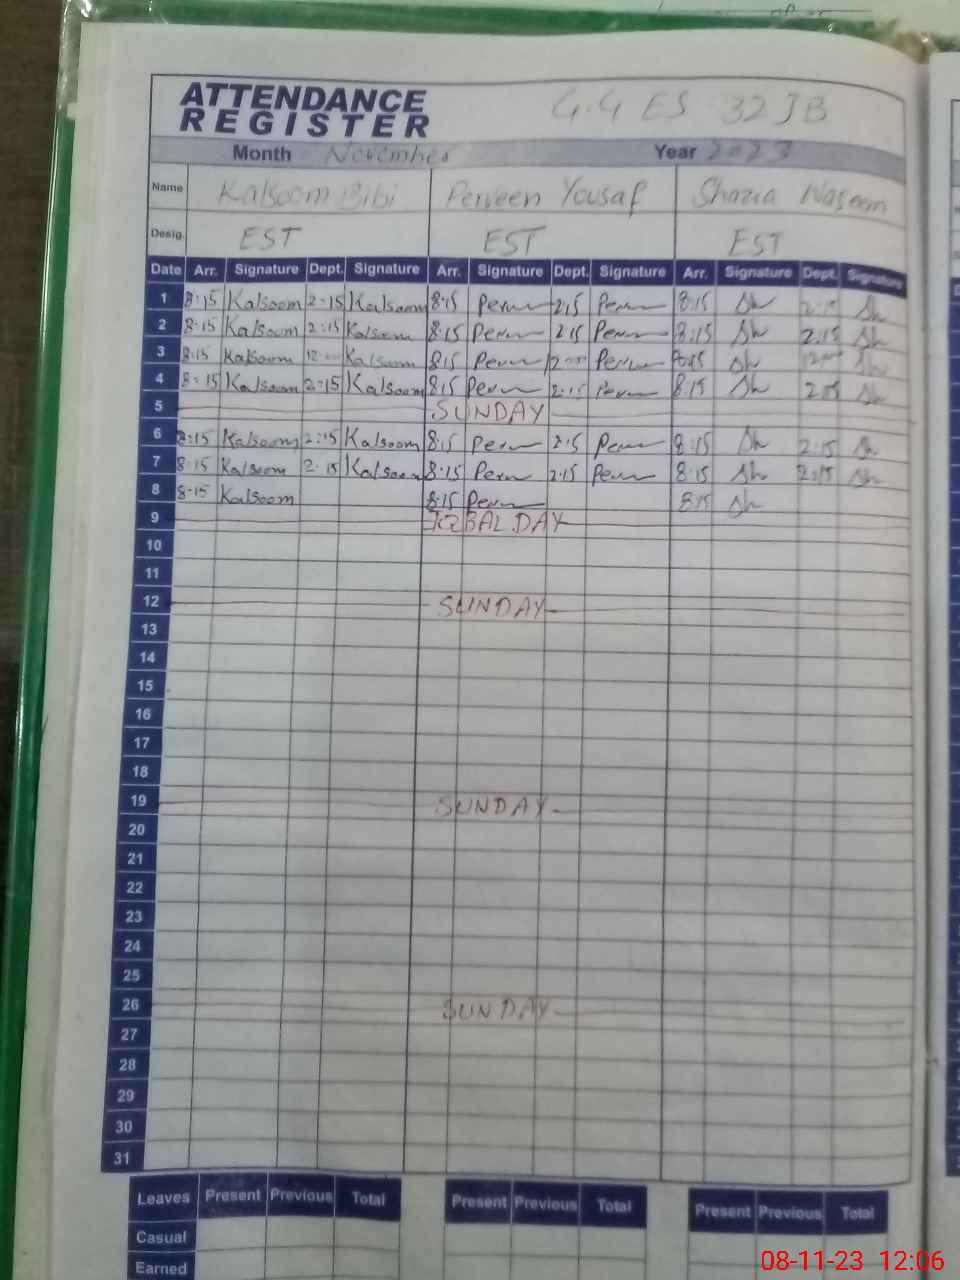 ATTENDANCE
REGISTER
G.G ES 32 JB
Month November Year 2023
Name Kalsoom Bibi Perveen Yousaf Shazia Naseem
Desig. EST EST EST
Date Arr. Signature Dept. Signature Arr. Signature Dept. Signature Arr. Signature Dept. Signature
1 8:15 Kalsoom 2:15 Kalsoom 8:15 Perm 2:15 Perm 8:15 Sh 2:15 Sh
2 8:15 Kalsoom 2:15 Kalsoom 8:15 Perm 2:15 Perm 8:15 Sh 2:15 Sh
3 8:15 Kalsoom 12:00 Kalsoom 8:15 Perm 12:00 Perm 8:15 Sh 12:00 Sh
4 8:15 Kalsoom 2:15 Kalsoom 8:15 Perm 2:15 Perm 8:15 Sh 2:15 Sh
5 SUNDAY
6 8:15 Kalsoom 2:15 Kalsoom 8:15 Perm 2:15 Perm 8:15 Sh 2:15 Sh
7 8:15 Kalsoom 2:15 Kalsoom 8:15 Perm 2:15 Perm 8:15 Sh 2:15 Sh
8 8:15 Kalsoom 8:15 Perm 8:15 Sh
9 IQBAL DAY
10
11
12 SUNDAY
13
14
15
16
17
18
19 SUNDAY
20
21
22
23
24
25
26 SUNDAY
27
28
29
30
31
Leaves Present Previous Total Present Previous Total Present Previous Total
Casual
Earned
08-11-23 12:06